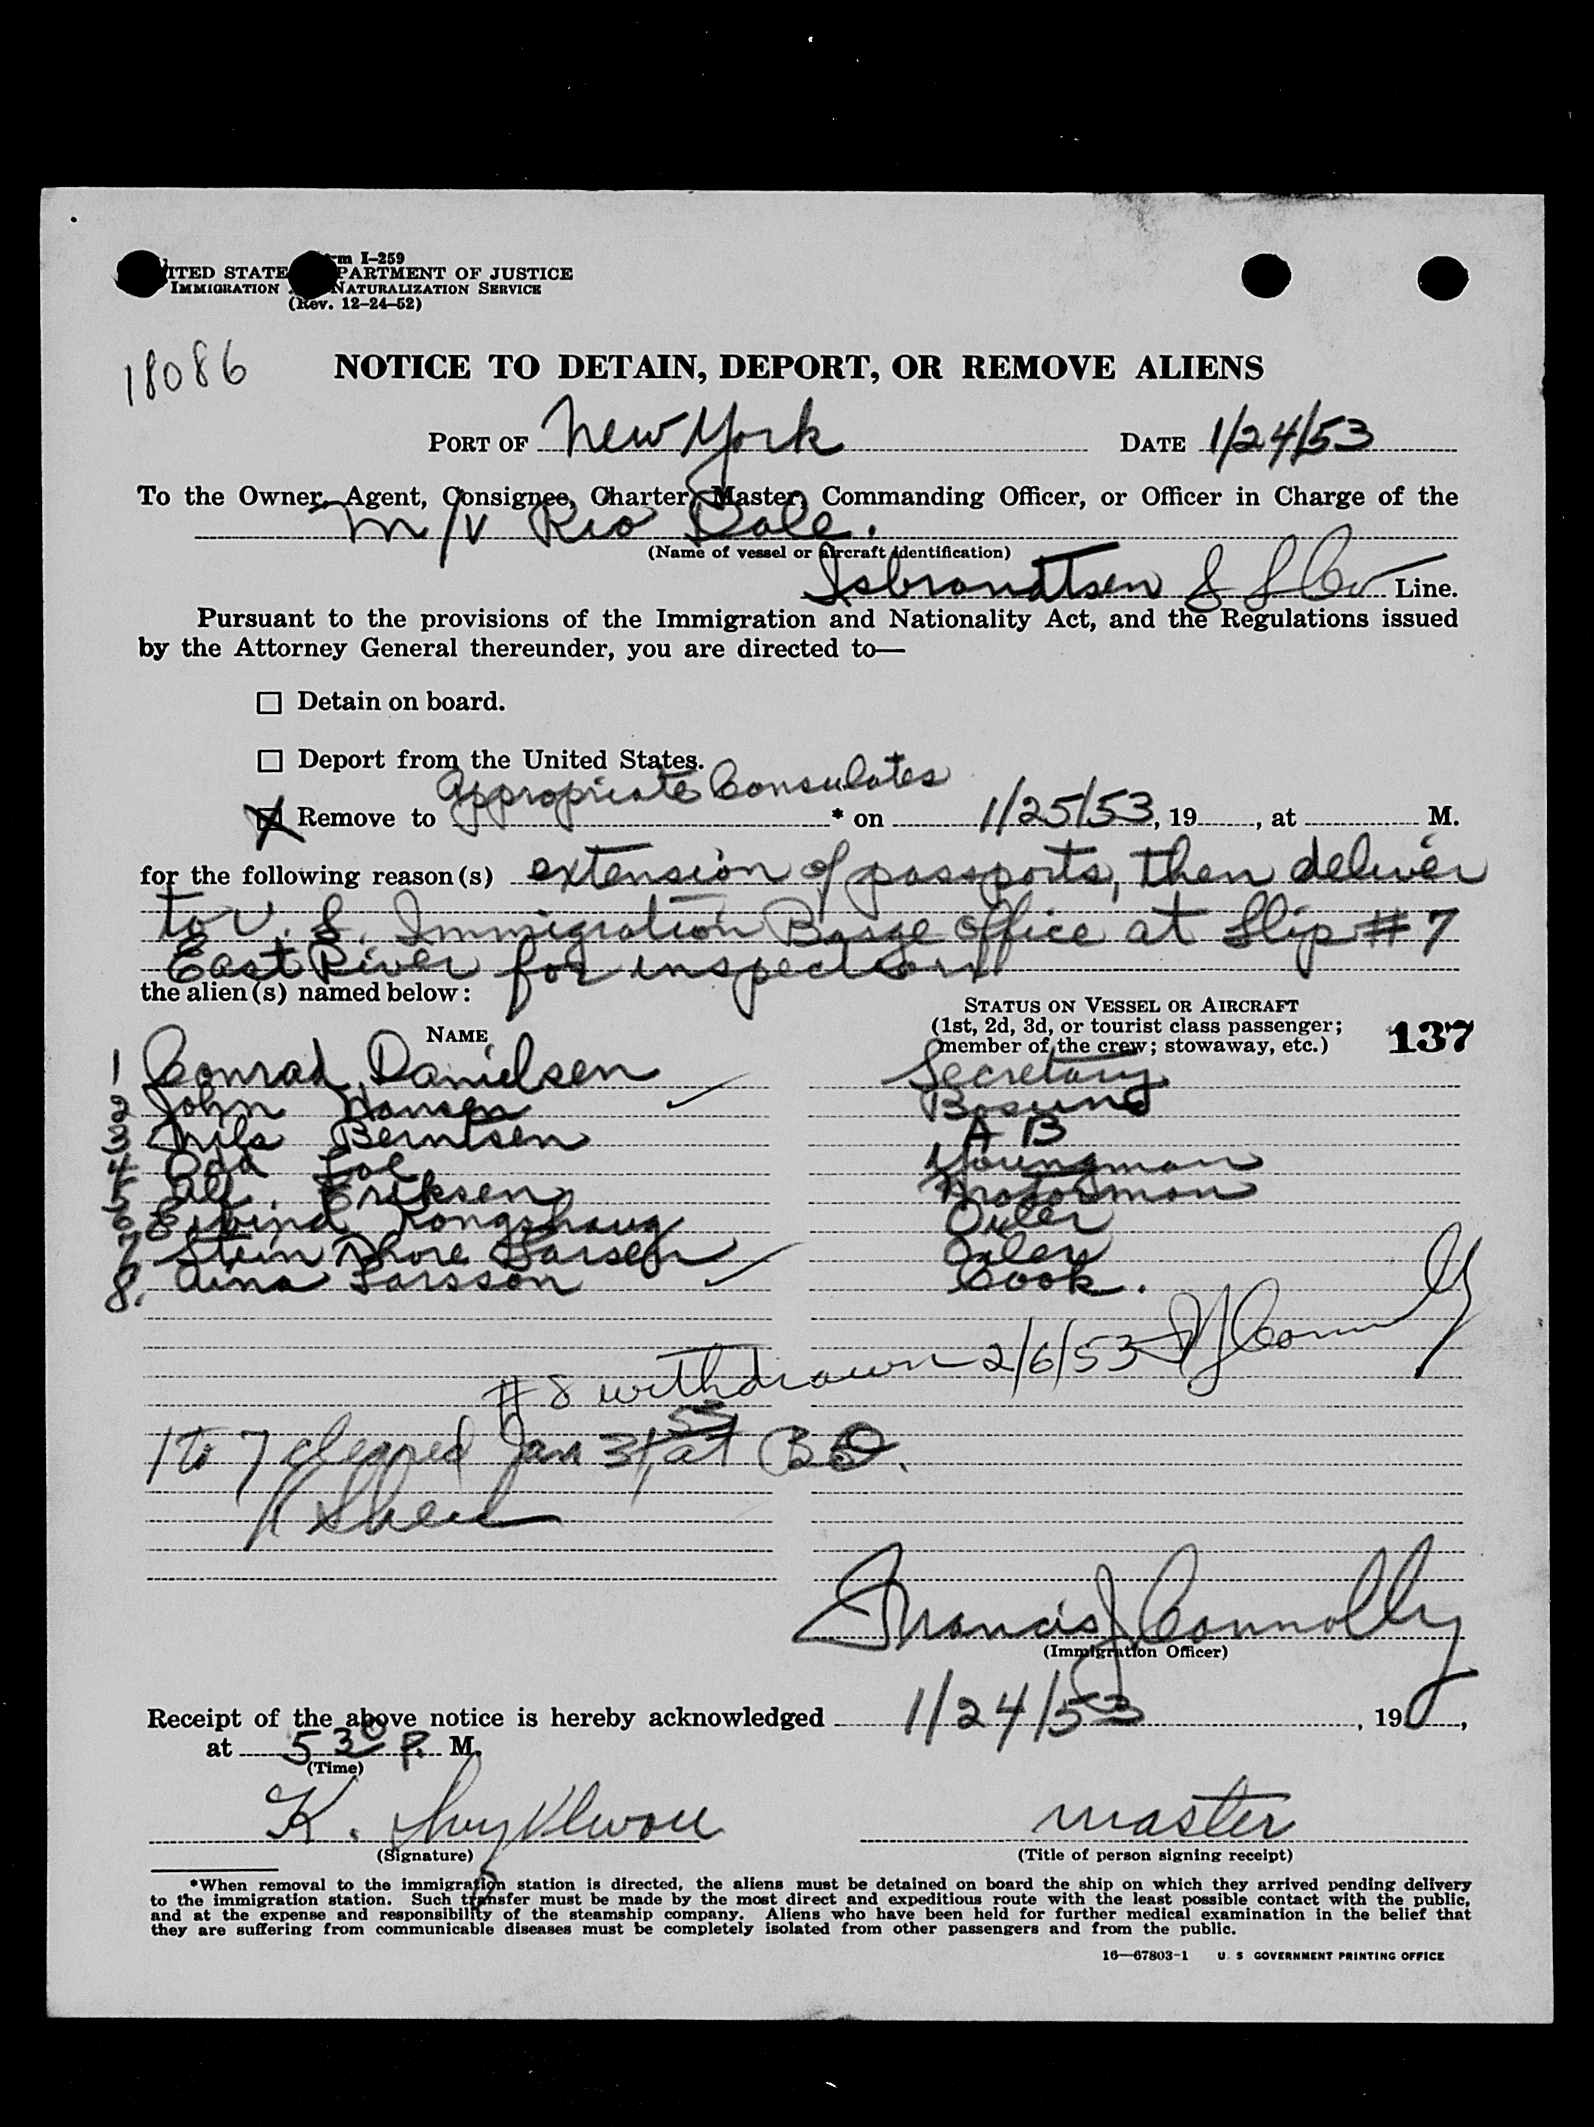 Form I-259
UNITED STATES DEPARTMENT OF JUSTICE
IMMIGRATION AND NATURALIZATION SERVICE
(Rev. 12-24-52)
18086
NOTICE TO DETAIN, DEPORT, OR REMOVE ALIENS
PORT OF New York DATE 1/24/53
To the Owner, Agent, Consignee, Charter, Master, Commanding Officer, or Officer in Charge of the
M/V Rio Dale.
(Name of vessel or aircraft identification)
Isbrandtsen S S Co Line.
Pursuant to the provisions of the Immigration and Nationality Act, and the Regulations issued
by the Attorney General thereunder, you are directed to—
☐ Detain on board.
☐ Deport from the United States.
☒ Remove to appropriate Consulates * on 1/25/53, 19 , at M.
for the following reason(s) extension of passports, then deliver
to U. S. Immigration Barge Office at Slip # 7
East River for inspection
the alien(s) named below:
NAME
STATUS ON VESSEL OR AIRCRAFT
(1st, 2d, 3d, or tourist class passenger;
member of the crew; stowaway, etc.)
137
1 Conrad Danielsen Secretary
2 John Hansen Bosun
3 Nils Berntsen A B
4 Odd Youngman
5 Alf. Eriksen Motorman
6 Eivind Rongshaug Oiler
7 Stein Thore Larsen Oiler
8. Aina Larsson Cook.
# 8 withdrawn 2/6/53 FJ Connolly
1 to 7 cleared Jan 31, 53 at B O.
Francis J Connolly
(Immigration Officer)
Receipt of the above notice is hereby acknowledged 1/24/53, 19 ,
at 5 30 P. M.
(Time)
K. master
(Signature) (Title of person signing receipt)
*When removal to the immigration station is directed, the aliens must be detained on board the ship on which they arrived pending delivery
to the immigration station. Such transfer must be made by the most direct and expeditious route with the least possible contact with the public,
and at the expense and responsibility of the steamship company. Aliens who have been held for further medical examination in the belief that
they are suffering from communicable diseases must be completely isolated from other passengers and from the public.
16—67803-1 U. S. GOVERNMENT PRINTING OFFICE